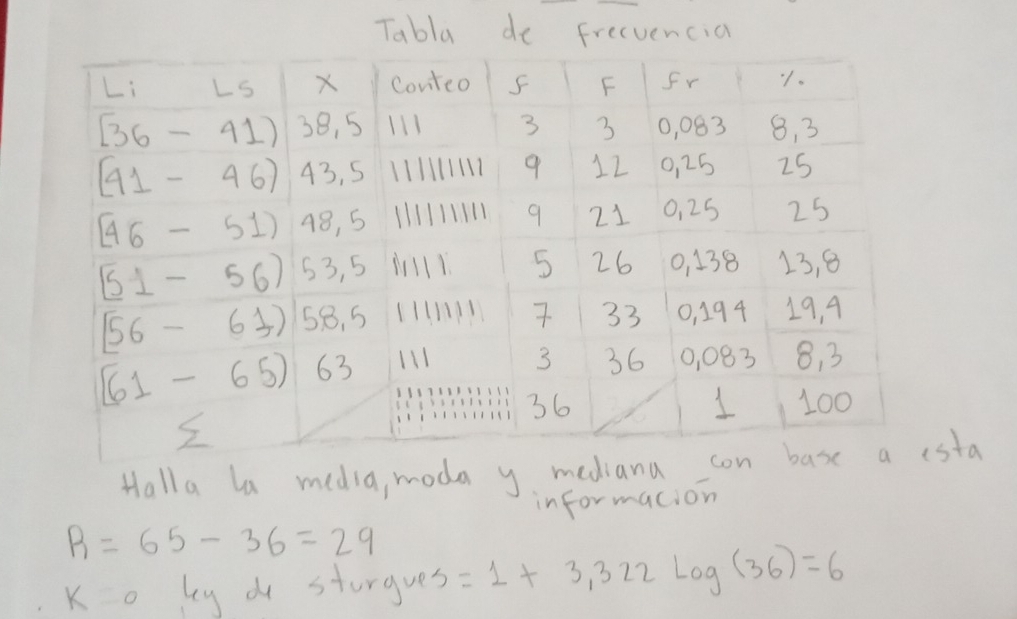 Tabla de frecuencia
Li Ls X Conteo f F fr %
[36 - 41) 38,5 ||| 3 3 0,083 8,3
[41 - 46) 43,5 ||||||||| 9 12 0,25 25
[46 - 51) 48,5 ||||||||| 9 21 0,25 25
[51 - 56) 53,5 ||||| 5 26 0,138 13,8
[56 - 61) 58,5 ||||||| 7 33 0,194 19,4
[61 - 65) 63 ||| 3 36 0,083 8,3
Σ 36 1 100
Halla la media, moda y mediana con base a esta
información
R = 65 - 36 = 29
K = o ley de sturgues = 1 + 3,322 Log (36) = 6